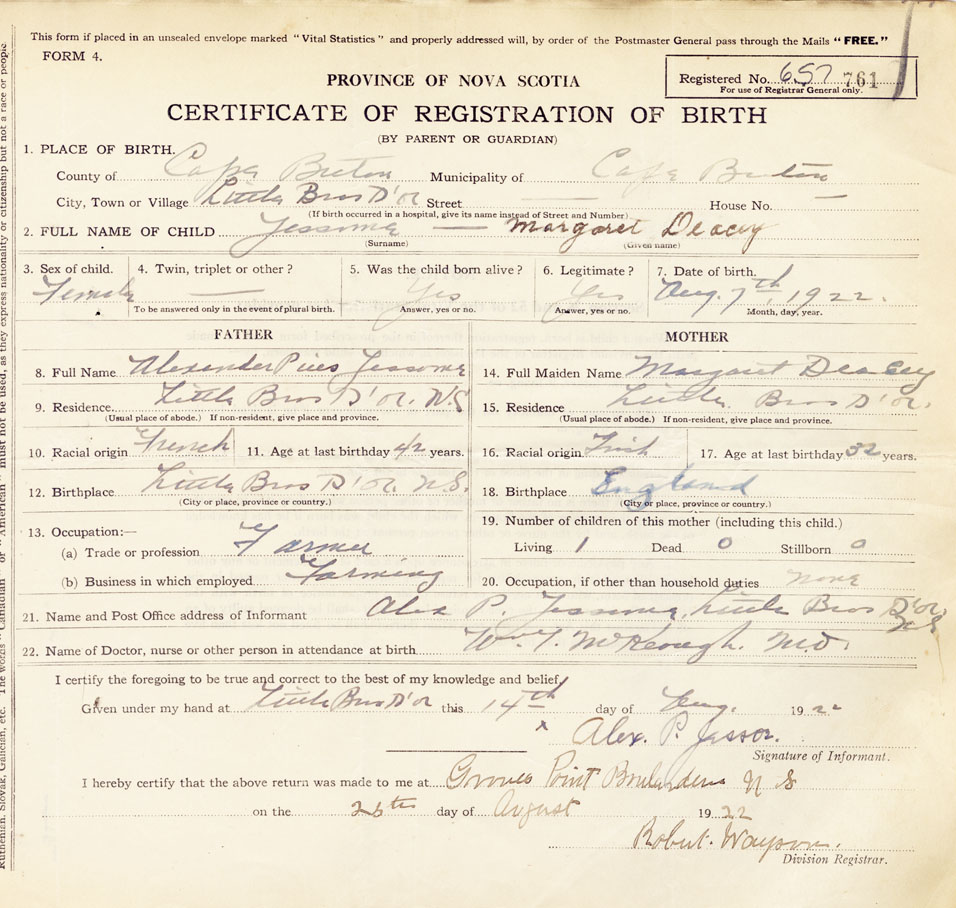 This form if placed in an unsealed envelope marked "Vital Statistics" and properly addressed will, by order of the Postmaster General pass through the Mails "FREE."
FORM 4.
PROVINCE OF NOVA SCOTIA
Registered No. 657 761
For use of Registrar General only.
CERTIFICATE OF REGISTRATION OF BIRTH
(BY PARENT OR GUARDIAN)
1. PLACE OF BIRTH.
County of Cape Breton Municipality of Cape Breton
City, Town or Village Little Bras D'or Street — House No. —
(If birth occurred in a hospital, give its name instead of Street and Number)
2. FULL NAME OF CHILD Jessome — Margaret Deacey
(Surname) (Given name)
3. Sex of child. 4. Twin, triplet or other? 5. Was the child born alive? 6. Legitimate? 7. Date of birth.
Female — Yes Yes Aug. 7th, 1922.
To be answered only in the event of plural birth. Answer, yes or no. Answer, yes or no. Month, day, year.
FATHER MOTHER
8. Full Name Alexander Pius Jessome 14. Full Maiden Name Margaret Deacey
9. Residence Little Bras D'or. N.S 15. Residence Little Bras D'or.
(Usual place of abode.) If non-resident, give place and province. (Usual place of abode.) If non-resident, give place and province.
10. Racial origin French 11. Age at last birthday 42 years. 16. Racial origin Irish 17. Age at last birthday 32 years.
12. Birthplace Little Bras D'or. N.S. 18. Birthplace England
(City or place, province or country.) (City or place, province or country.)
13. Occupation:— 19. Number of children of this mother (including this child.)
(a) Trade or profession Farmer Living 1 Dead 0 Stillborn 0
(b) Business in which employed Farming 20. Occupation, if other than household duties none
21. Name and Post Office address of Informant Alex P. Jessome, Little Bras D'or, N.S
22. Name of Doctor, nurse or other person in attendance at birth Wm. J. McKeough. M.D.
I certify the foregoing to be true and correct to the best of my knowledge and belief,
Given under my hand at Little Bras D'or this 14th day of Aug. 1922
x Alex. P. Jessor.
Signature of Informant.
I hereby certify that the above return was made to me at Groves Point N S
on the day of August 1922
Robert.
Division Registrar.
Ruthenian, Slovak, Galician, etc. The words "Canadian" or "American" must not be used, as they express nationality or citizenship but not a race or people.